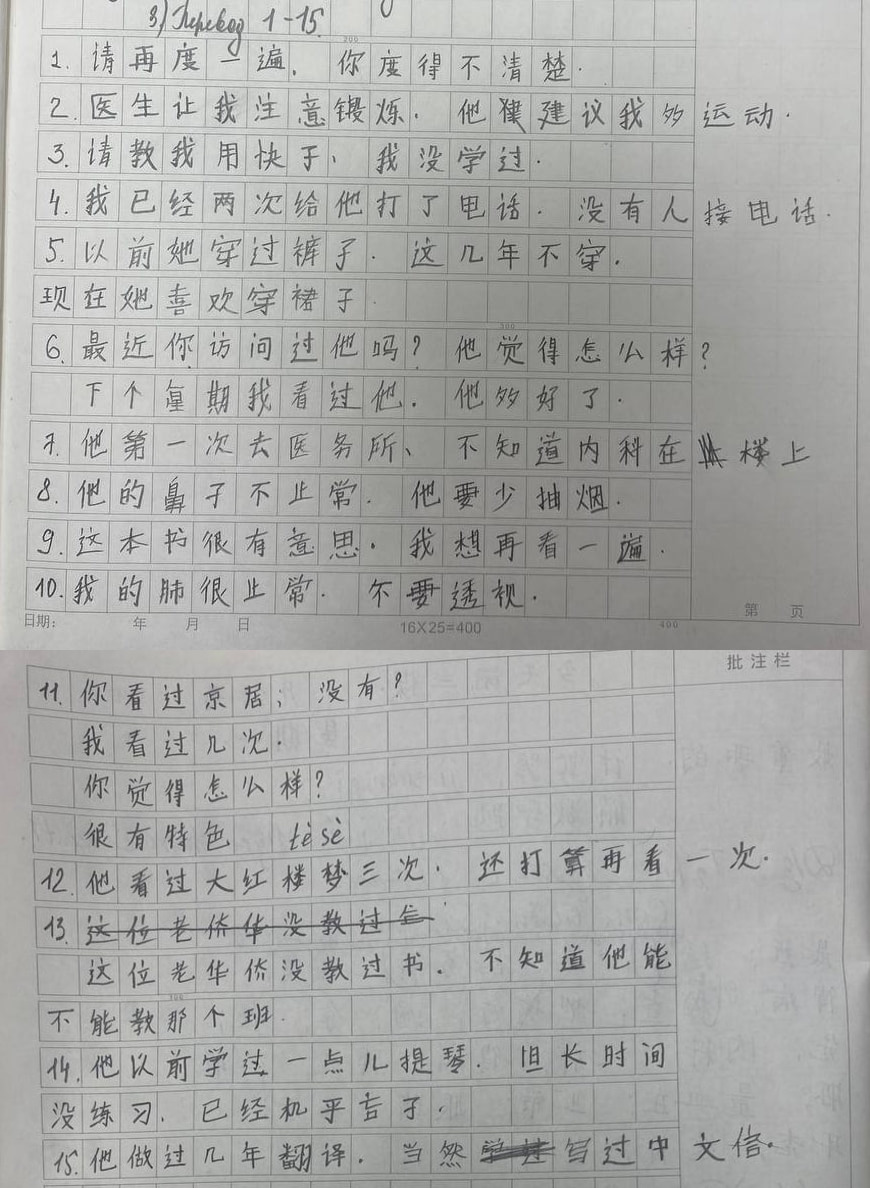 3) Перевод 1-15.
1. 请再度一遍. 你度得不清楚.
2. 医生让我注意锻炼. 他建议我多运动.
3. 请教我用快子, 我没学过.
4. 我已经两次给他打了电话. 没有人接电话.
5. 以前她穿过裤子. 这几年不穿.
现在她喜欢穿裙子
6. 最近你访问过他吗? 他觉得怎么样?
下个星期我看过他. 他多好了.
7. 他第一次去医务所、不知道内科在楼上
8. 他的鼻子不止常. 他要少抽烟.
9. 这本书很有意思. 我想再看一遍.
10. 我的肺很止常. 不要透视.
日期: 年 月 日 16X25=400 400 第 页
批注栏
11. 你看过京居; 没有?
我看过几次.
你觉得怎么样?
很有特色 tèsè
12. 他看过大红楼梦三次. 还打算再看一次.
13. 这位老侨华没教过
这位老华侨没教过书. 不知道他能
不能教那个班.
14. 他以前学过一点儿提琴. 但长时间
没练习. 已经机乎吉子.
15. 他做过几年翻译. 当然写过中文信.